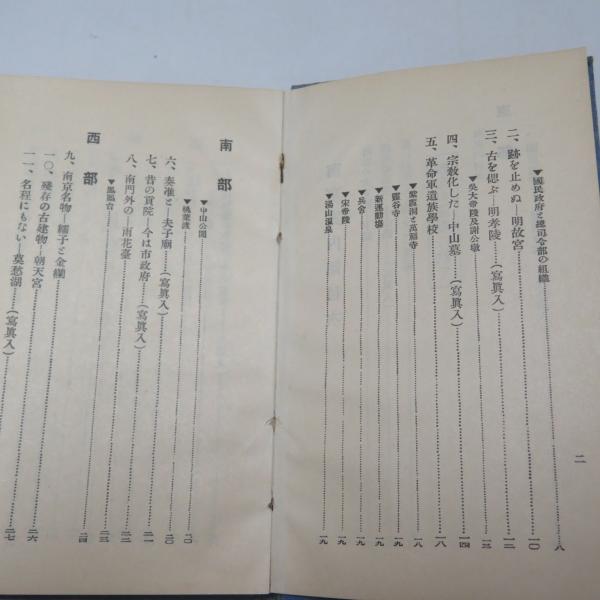 ▼國民政府と總司令部の組織……八
二、跡を止めぬ—明故宮……一〇
三、古を偲ぶ—明孝陵……(寫眞入)……一二
▼吳大帝陵及謝公墩……一三
四、宗敎化した—中山墓……(寫眞入)……一四
五、革命軍遺族學校……一八
▼紫霞洞と萬福寺……一八
▼靈谷寺……一九
▼新運動場……一九
▼兵舍……一九
▼宋帝陵……一九
▼湯山溫泉……一九
二
南部
▼中山公園
▼桃葉渡……二〇
六、秦淮と夫子廟……(寫眞入)……二〇
七、昔の貢院—今は市政府……(寫眞入)……二一
八、南門外の—雨花臺……二二
▼鳳凰台……二三
西部……二四
九、南京名物—繻子と金襴
一〇、殘存の古建物—朝天宮……二六
一一、名程にもない—莫愁湖……(寫眞入)……二七